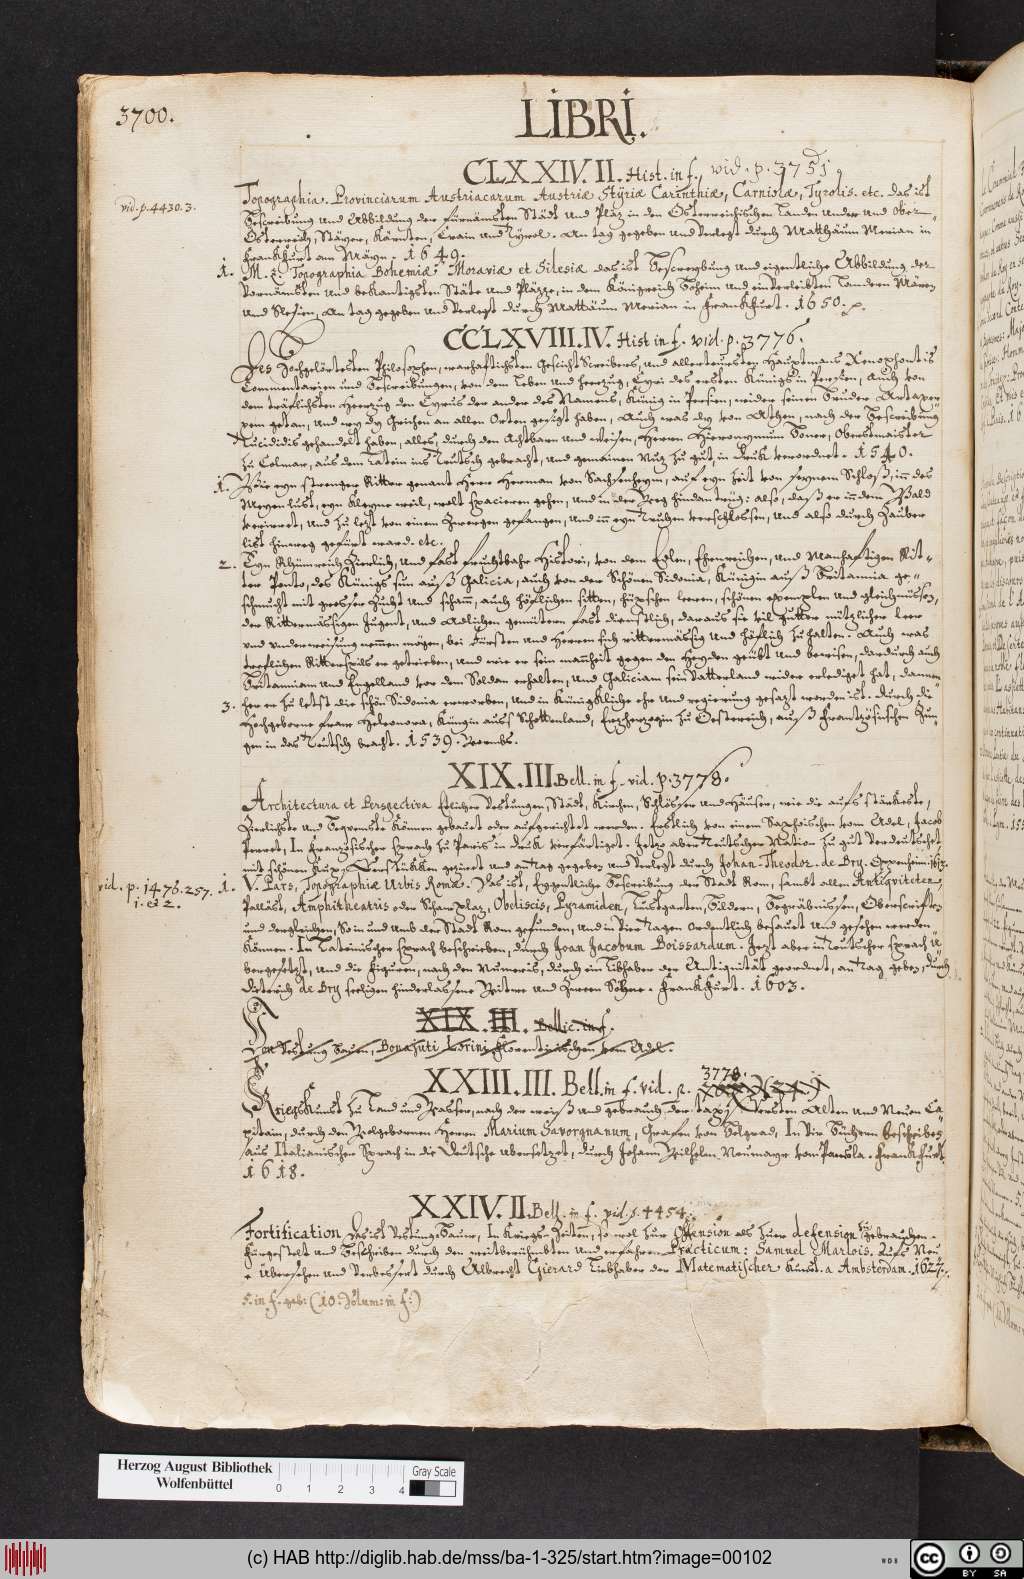 3700.
LIBRI.
CLXXIV.II. Hist. in f. vid. p. 3751.
vid. p. 4430. 3.
Topographia Provinciarum Austriacarum Austriæ Styriæ Carinthiæ, Carniolæ, Tyrolis. etc. das ist
Beschreibung und Abbildung der fürnämsten Stätt und Pläz in den Österreichischen Landen under und Ober-
Österreich, Steyer, Kärnten, Crain und Tyrol. An tag gegeben und verlegt durch Matthäum Merian in
Franckfurt am Mayn. 1649.
1. M. Z. Topographia Bohemiæ Moraviæ et Silesiæ das ist Beschreybung und eigentliche Abbildung der
Vornämsten und bekantigsten Stäte und Plätze, in dem Königreich Boheim und einverleibten Landern Mären
und Slesien, An tag gegeben und verlegt durch Mattäum Merian in Franckfurt. 1650.
CCLXVIII.IV. Hist in f. vid. p. 3776.
Des Hochgelörtesten Philosophen, warhaftichsten Geschicht Screibers, und allerteursten Hauptmans Xenophontis
Commentarien und Beschreibungen, von dem Leben und Heerzug, Cyri des ersten Königs in Persien, Auch von
dem träflichsten Heerzug den Cyrus der ander des Namens, König in Persien, wider seinen Bruder Artaxer-
xem getan, und wy dy Grichen an allen Orten gesigt haben, Auch was dy von Athen, nach der Beschreibung
Tucididis gehandelt haben, alles, durch den Achtbarn und weisen, Herren Hieronymum Boner, Oberstmaister
zu Colmar, aus dem Latein ins Teutsch gebracht, und gemainem Nuz zu gut, in Druk verordnet. 1540.
1. Wie eyn strenger Ritter genant Herr Herman von Sachsenheym, auf eyn zeit von seynem Schloß, inn des
Meyen lust, eyn kleyne weil, wolt spacieren gehen, und in der Weg hindan trüg: also, daß er inn dem Wald
verirret, und zu lezt von einem Zwergen gefangen, und inn eyn Truhen verschlossen, und also durch Zauber
list hinweg gefürt ward. etc.
2. Eyn Rhümreich Zierlich, und fast fruchtbahr Histori, von dem Edlen, Ehrenreichen, und Manhaftigen Rit-
ter Ponto, des Königs sun auß Galicia, auch von der Schönen Sidonia, Künigin auß Britannia. ge-
schmucht mit grosser Zucht und scham, auch höflichen sitten, hüpschen leeren, schönen exemplen und gleichnüssen,
der Rittermässigen Jugent, und Adlichen gemütern fast dienstlich, daraus sie vil guter nützlicher leer
und underweisung nemen mögen, bei Fürsten und Herren sich rittermässig und höflich zu halten. Auch was
treflichen Ritterspils er getrieben, und wie er sein manheit gegen den Heyden geübt und bewisen, dardurch auch
Britanniam und Engelland vor dem Soldan erhalten, und Galiciam sein Vatterland wider erlediget hat, dannen
3. her er zu letst die schön Sidonia erworben, und in Künigkliche ehr und regierung gesazt worden ist. Durch die
Hochgeborne fraw Heleonora, Künigin auss Schottenland, Erzherzogin zu Oesterreich, auß Frantzösischen Zun-
gen in das Teutsch bracht. 1539. Wormbs.
XIX.III. Bell. in f. vid. p. 3778.
Architectura et Perspectiva Etlicher Vestungen, Städt, Kirchen, Schlösser und Häuser, wie die aufs stärkeste,
Zierlichste und bequemste können gebauet oder aufgerichtet werden. Erstlich von einem Saphoischen vom Adel, Jacob
Perret, In Französischer Sprach zu Paris in druk verfärtiget. Jetzo aber Teutscher Nation zu gut verdeutschet
mit schönen Kupferstükken gezieret und an tag gegeben und verlegt durch Johan Theodor. de Bry. Oppenheim 1613.
vid. p. 1476. 257.
1. et 2.
1. V. Pars, Topographiæ Urbis Romæ. Das ist, Eygentliche Beschreibung der Stadt Rom, sambt allen Antiqviteten
Palläst, Amphitheatris oder Schauplaz, Obeliscis, Pyramiden, Lustgarten, Bildern, Begräbnissen, Oberschriften
und dergleichen, So in und umb der Stadt Rom gefunden, und in vier Tagen ordentlich besauet und gesehen werden
können. In Lateinischer Sprach beschrieben, durch Joan Jacobum Boissardum. Jezt aber in Teutscher Sprach ü-
bergesetzt, und die Figuren, nach den Numeris, durch ein Libhaber der Antiquität geordnet, an tag geben, durch
Dieterich de Bry seeligen hinderlassene Witwe und zween Söhne. Franckfurt. 1603.
XIX. III. Bellic. in f.
Von Vestung Bauen, Bonajuti Lorini Florentinischen vom Adel.
XXIII.III. Bell. in f. vid. p. 3778.
Kriegskunst zu Land und Wasser, nach der weiß und gebrauch der tapfersten Alten und Neuen Ca-
pitain, durch den Wolgebornen Herrn Marium Savorgnanum, Grafen von Belgrad, In vir Büchern beschriben
aus Italianischer Sprach in die Deutsche übersetzet, durch Johann Wilhelm Neumayr von Ramsla. Franckfurt.
1618.
XXIV.II. Bell. in f. vid. p. 4454.
Fortification Das ist Vestung Bauw, In Kriegs Zeiten, so wol zur Offension als zuer defension zu gebrauchen.
Fürgestelt und Beschriben durch den weitberühmbten und erfahren Practicum: Samuel Marlois. Aufs Neu-
e übersehen und verbessert durch Albrecht Gierard Liebhaber der Matematischer Kunst. a Ambsterdam. 1627.
5. in f. geb: (10: Volum: in f:)
Herzog August Bibliothek
Wolfenbüttel
0 1 2 3 4
Gray Scale
(c) HAB http://diglib.hab.de/mss/ba-1-325/start.htm?image=00102
WDB
CC BY SA